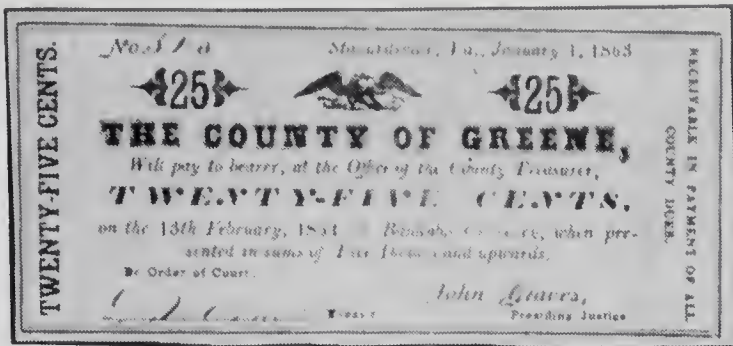 TWENTY-FIVE CENTS.
No.
January 1, 1863
25 25
THE COUNTY OF GREENE,
Will pay to bearer, at the Office of the County Treasurer,
TWENTY-FIVE CENTS,
on the 13th February, when pre-
sented in sums of Five Dollars and upwards.
By Order of Court.
John Graves,
Presiding Justice
RECEIVABLE IN PAYMENT OF ALL
COUNTY DUES.